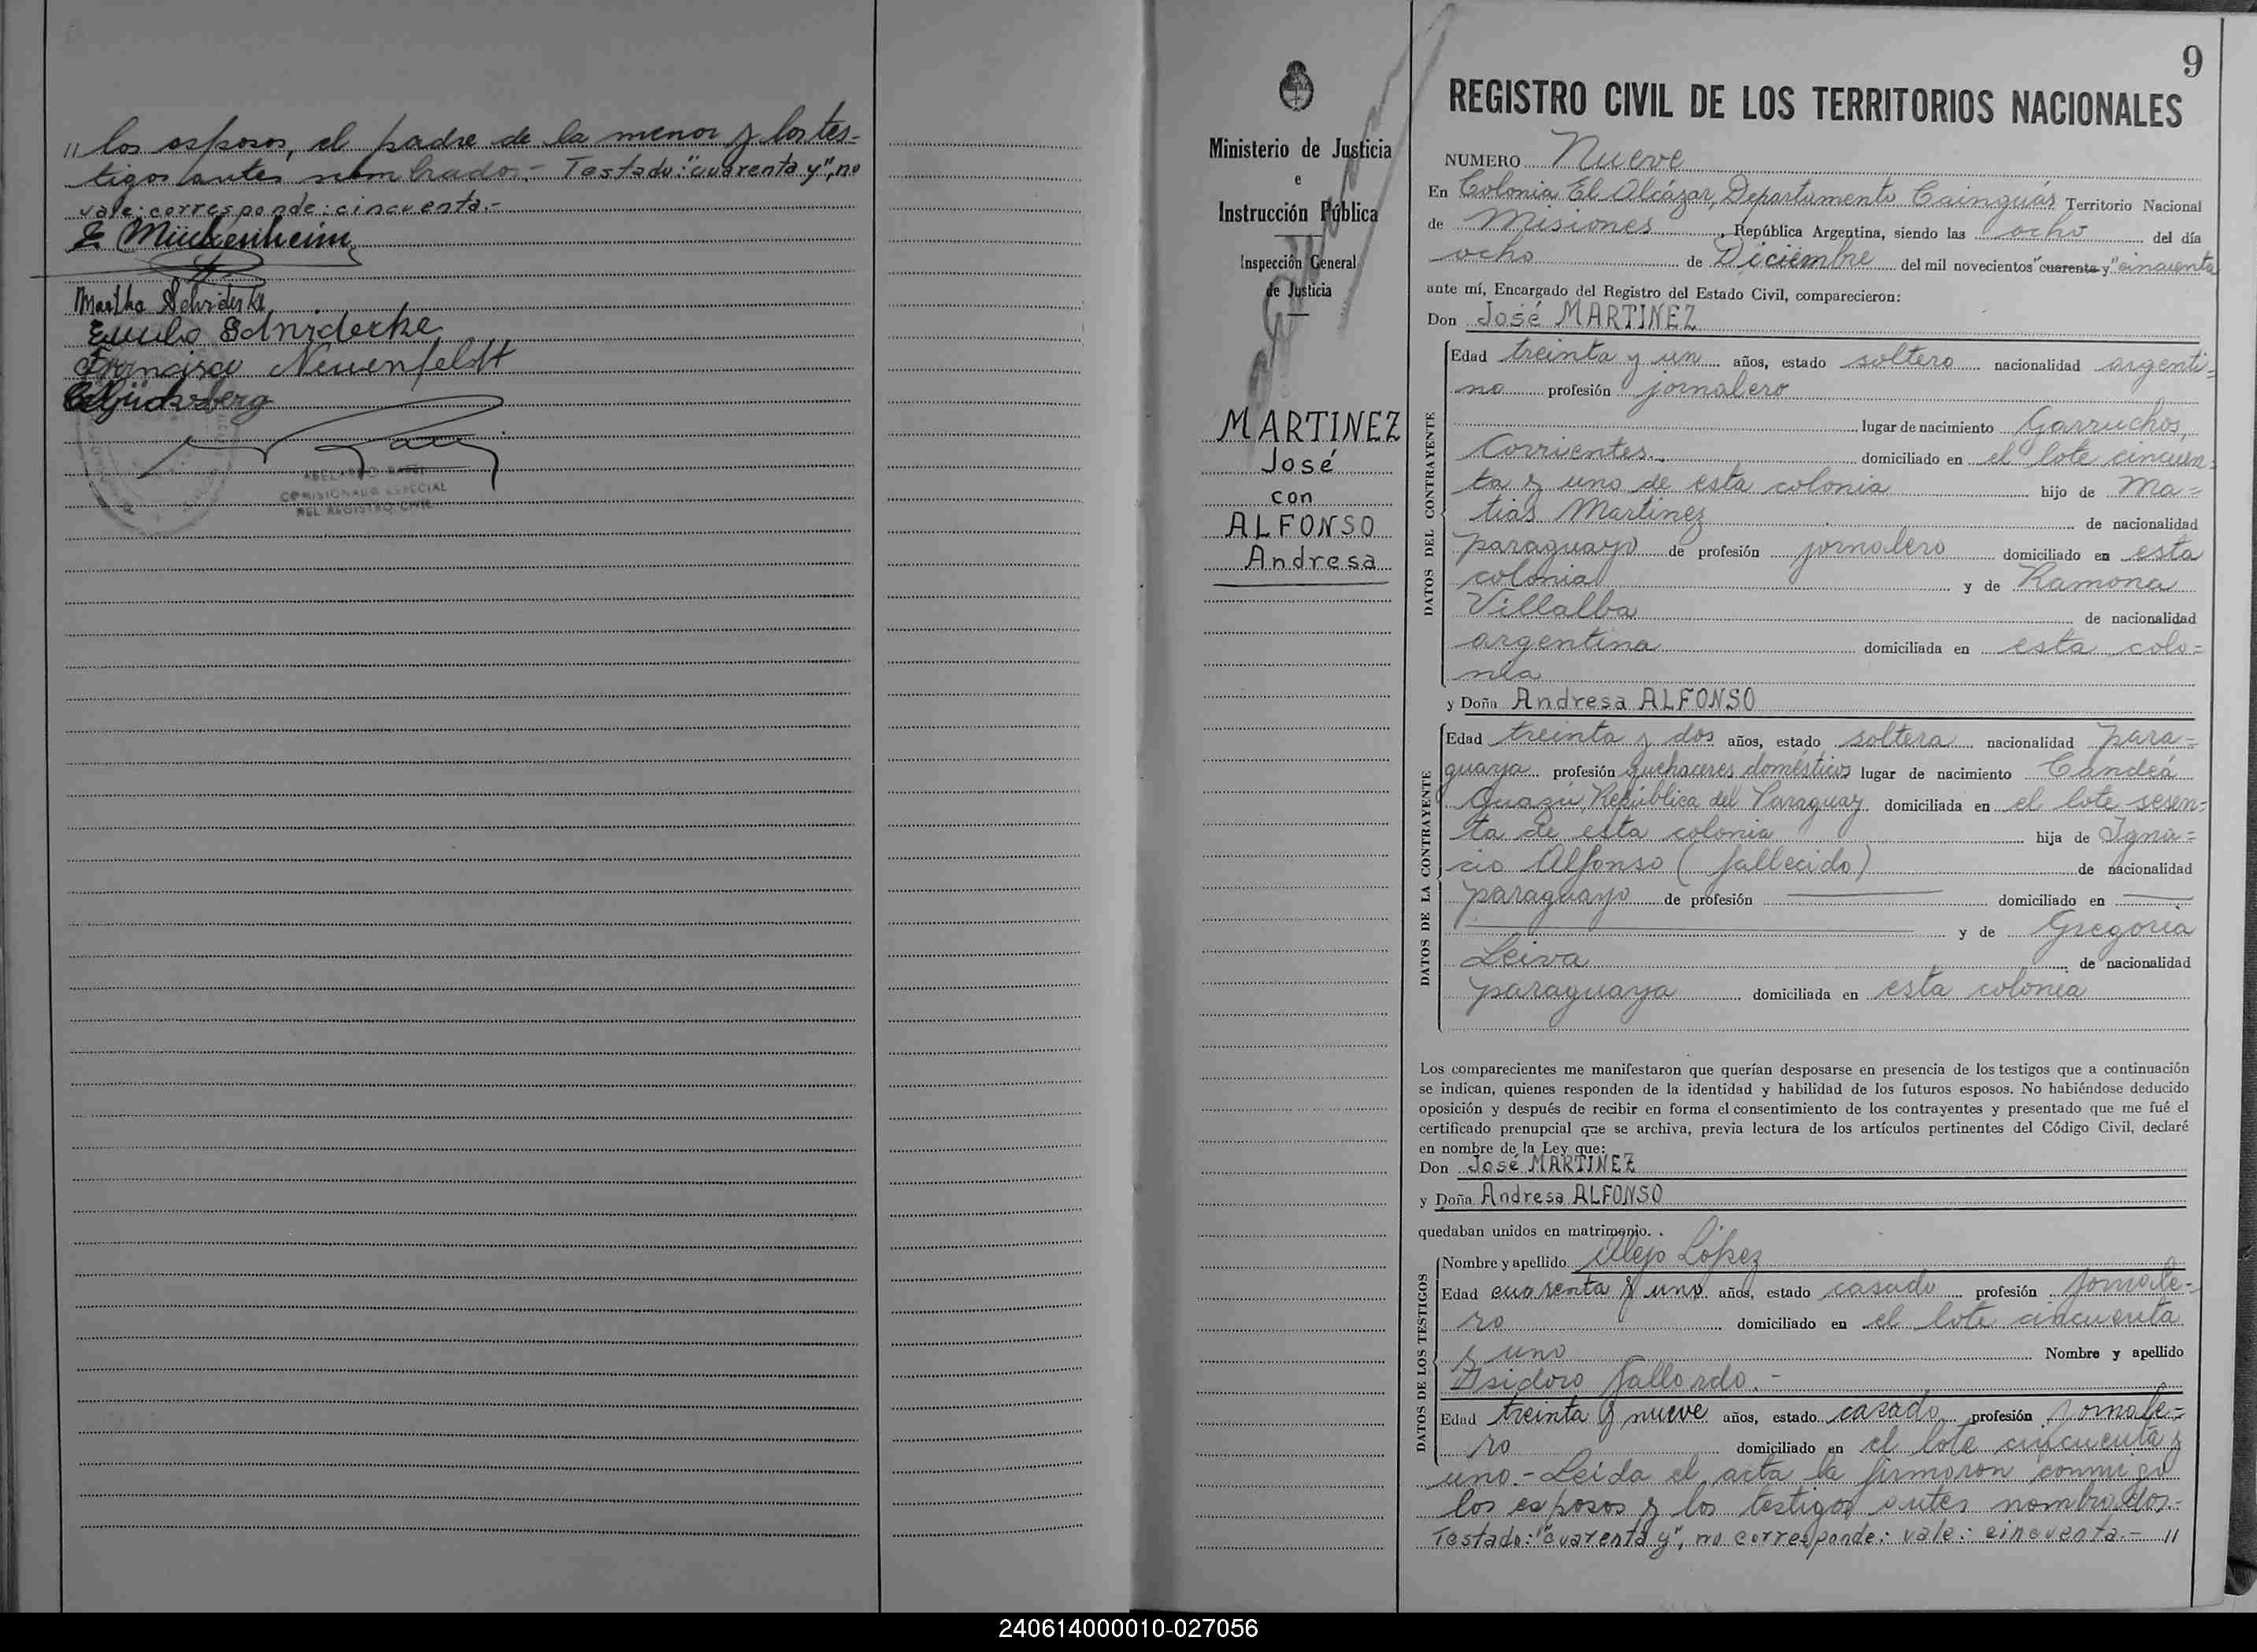 " los esposos, el padre de la menor y los tes-
tigos antes nombrados.- Testado: "cuarenta y", no
vale: corresponde: cincuenta.-
E Mückenheim
Martha Schnideske
Emilio Schniderke
Francisco Neuenfeldt
COMISIONADO ESPECIAL
DEL REGISTRO CIVIL
9
Ministerio de Justicia
e
Instrucción Pública
Inspección General
de Justicia
MARTINEZ
José
con
ALFONSO
Andresa
REGISTRO CIVIL DE LOS TERRITORIOS NACIONALES
NUMERO Nueve
En Colonia El Alcázar, Departamento Cainguás Territorio Nacional
de Misiones, República Argentina, siendo las ocho del día
ocho de Diciembre del mil novecientos "cuarenta y" cincuenta
ante mí, Encargado del Registro del Estado Civil, comparecieron:
Don José MARTINEZ
DATOS DEL CONTRAYENTE
Edad treinta y un años, estado soltero nacionalidad argenti=
no profesión jornalero
lugar de nacimiento Garruchos,
Corrientes. domiciliado en el lote cincuen=
ta y uno de esta colonia hijo de Ma=
tías Martinez de nacionalidad
paraguayo de profesión jornalero domiciliado en esta
colonia y de Ramona
Villalba de nacionalidad
argentina domiciliada en esta colo=
nia
y Doña Andresa ALFONSO
DATOS DE LA CONTRAYENTE
Edad treinta y dos años, estado soltera nacionalidad para=
guaya profesión quehaceres domésticos lugar de nacimiento Candeá
Guazú, República del Paraguay domiciliada en el lote sesen=
ta de esta colonia hija de Igna=
cio Alfonso (fallecido) de nacionalidad
paraguayo de profesión domiciliado en
y de Gregoria
Leiva de nacionalidad
paraguaya domiciliada en esta colonia
Los comparecientes me manifestaron que querían desposarse en presencia de los testigos que a continuación
se indican, quienes responden de la identidad y habilidad de los futuros esposos. No habiéndose deducido
oposición y después de recibir en forma el consentimiento de los contrayentes y presentado que me fué el
certificado prenupcial que se archiva, previa lectura de los artículos pertinentes del Código Civil, declaré
en nombre de la Ley que:
Don José MARTINEZ
y Doña Andresa ALFONSO
quedaban unidos en matrimonio. .
DATOS DE LOS TESTIGOS
Nombre y apellido Alejo López
Edad cuarenta y uno años, estado casado profesión jornale-
ro domiciliado en el lote cincuenta
y uno Nombre y apellido
Isidoro Gallardo.-
Edad treinta y nueve años, estado casado profesión jornale-
ro domiciliado en el lote cincuenta y
uno.- Leída el acta la firmaron conmigo
los esposos y los testigos antes nombrados.-
Testado: "cuarenta y", no corresponde: vale: cincuenta.- "
240614000010-027056